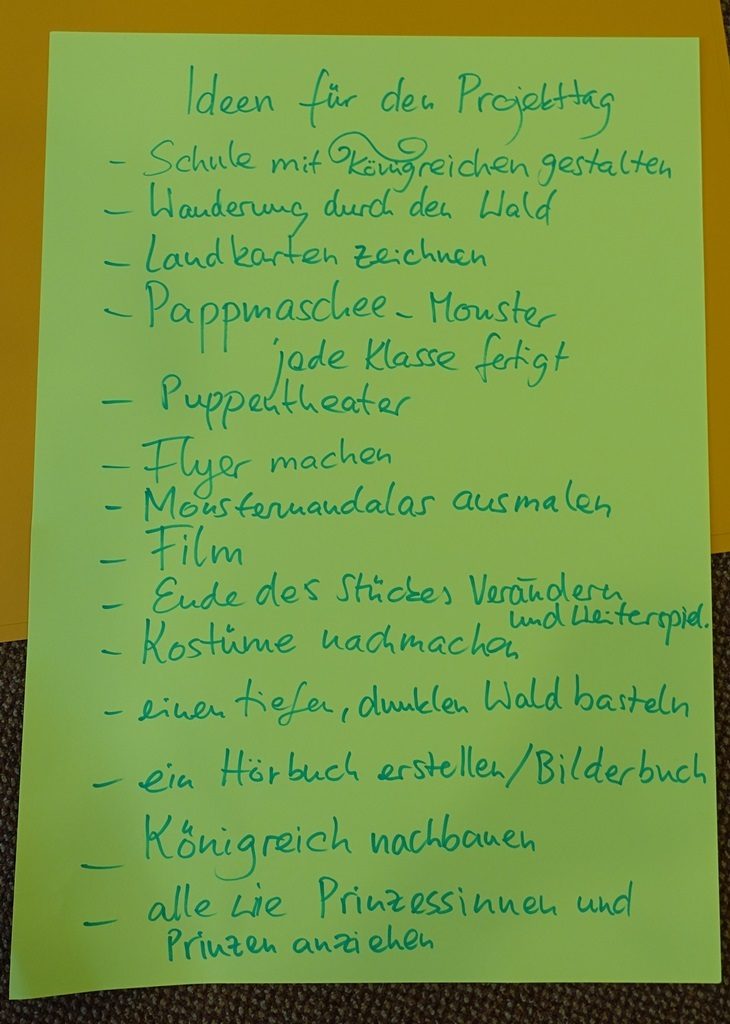 Ideen für den Projekttag
- Schule mit Königreichen gestalten
- Wanderung durch den Wald
- Landkarten zeichnen
- Pappmaschee - Monster
jede Klasse fertigt
- Puppentheater
- Flyer machen
- Monstermandalas ausmalen
- Film
- Ende des Stückes Verändern
und Weiterspiel.
- Kostüme nachmachen
- einen tiefen, dunklen Wald basteln
- ein Hörbuch erstellen/Bilderbuch
- Königreich nachbauen
- alle wie Prinzessinnen und
Prinzen anziehen